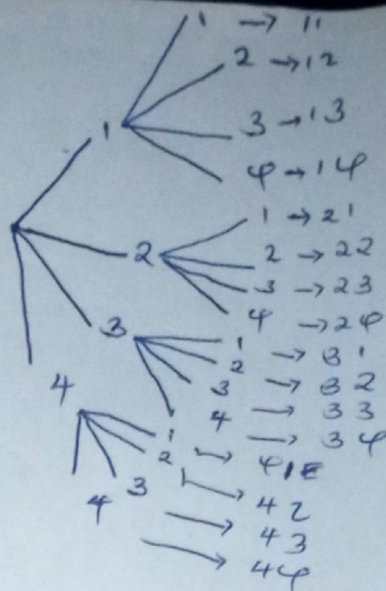 1 → 11
2 → 12
1
3 → 13
4 → 14
1 → 21
2
2 → 22
3 → 23
4 → 24
3
1 → 31
2 → 32
3 → 33
4 → 34
4
1 → 41
2 → 42
3 → 43
4 → 44